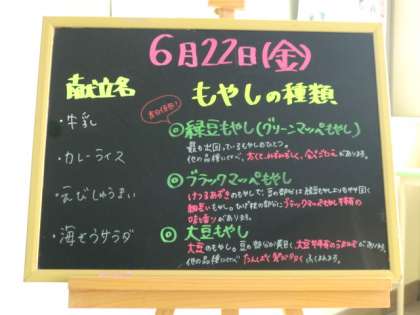 6月22日(金)
献立名
・牛乳
・カレーライス
・えびしゅうまい
・海そうサラダ
もやしの種類
◎緑豆もやし(グリーンマッペもやし)
最も出回っているもやしのひとつ。
他の品種に比べ、太くて、みずみずしく、食べごたえがあります。
◎ブラックマッペもやし
けつるあずきのもやしで、豆の部分は緑豆もやしよりもやや固く
細長いもやし。ひげ根の部分にブラックマッペもやし特有の
味と香りがあります。
◎大豆もやし
大豆のもやし。豆の部分が黄色く、大豆特有のうまみがあります。
他の品種に比べ、たんぱく質が多くふくまれます。